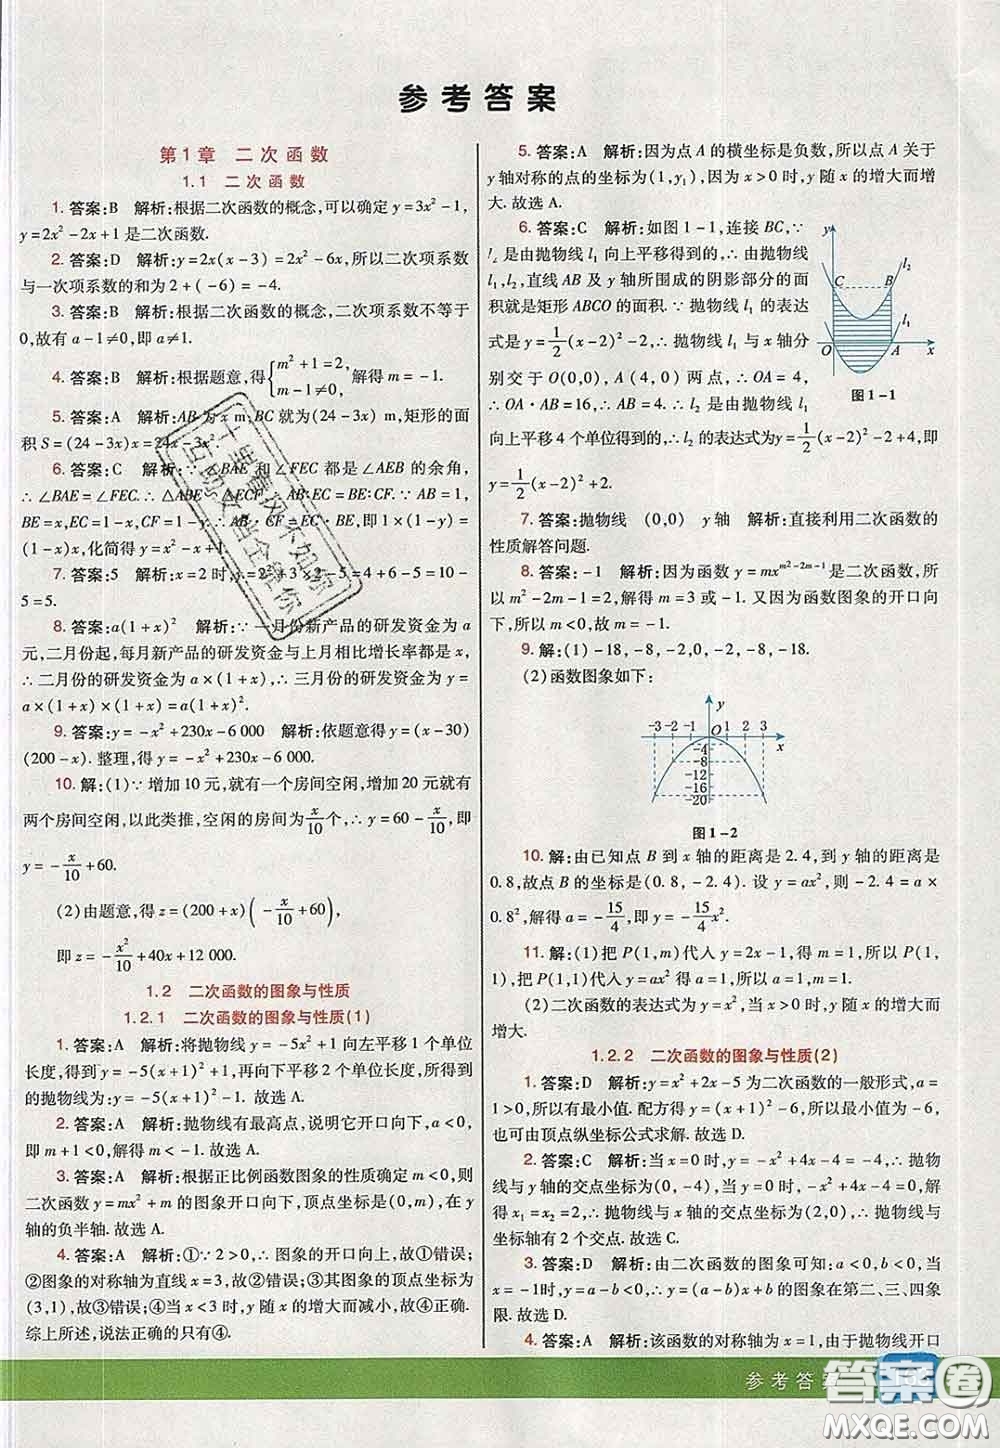 参考答案
第1章 二次函数
1.1 二次函数
1. 答案:B 解析:根据二次函数的概念,可以确定 y=3x²-1,
y=2x²-2x+1 是二次函数.
2. 答案:D 解析:y=2x(x-3)=2x²-6x,所以二次项系数
与一次项系数的和为 2+(-6)=-4.
3. 答案:B 解析:根据二次函数的概念,二次项系数不等于
0,故有 a-1≠0,即 a≠1.
4. 答案:B 解析:根据题意,得{m²+1=2, m-1≠0, 解得 m=-1.
5. 答案:A 解析:AB 为 x m,BC 就为(24-3x) m,矩形的面
积 S=(24-3x)x=24x-3x².
6. 答案:C 解析:∵∠BAE 和∠FEC 都是∠AEB 的余角,
∴∠BAE=∠FEC.∴△ABE∽△ECF.∵AB=1,
BE=x,EC=1-x,CF=1-y.∵AB·CF=EC·BE,即 1×(1-y)=
(1-x)x,化简得 y=x²-x+1.
7. 答案:5 解析:x=2 时,y=2²+3×2-5=4+6-5=10-
5=5.
8. 答案:a(1+x)² 解析:∵一月份新产品的研发资金为 a
元,二月份起,每月新产品的研发资金与上月相比增长率都是 x,
∴二月份的研发资金为 a×(1+x),∴三月份的研发资金为 y=
a×(1+x)×(1+x)=a(1+x)².
9. 答案:y=-x²+230x-6 000 解析:依题意得 y=(x-30)
(200-x). 整理,得 y=-x²+230x-6 000.
10. 解:(1)∵增加 10 元,就有一个房间空闲,增加 20 元就有
两个房间空闲,以此类推,空闲的房间为x/10个,∴y=60-x/10,即
y=-x/10+60.
(2)由题意,得 z=(200+x)(-x/10+60),
即 z=-x²/10+40x+12 000.
1.2 二次函数的图象与性质
1.2.1 二次函数的图象与性质(1)
1. 答案:A 解析:将抛物线 y=-5x²+1 向左平移 1 个单位
长度,得到 y=-5(x+1)²+1,再向下平移 2 个单位长度,所得到
的抛物线为:y=-5(x+1)²-1. 故选 A.
2. 答案:A 解析:抛物线有最高点,说明开口向下,a<0,
即 m+1<0,解得 m<-1. 故选 A.
3. 答案:A 解析:根据正比例函数图象的性质确定 m<0,则
二次函数 y=mx²+m 的图象开口向下,顶点坐标是(0,m),在 y
轴的负半轴. 故选 A.
4. 答案:A 解析:①∵2>0,∴图象的开口向上,故①错误;
②图象的对称轴为直线 x=3,故②错误;③图象的顶点坐标为
(3,1),故③错误;④当 x<3 时,y 随 x 的增大而减小,故④正确.
综上所述,说法正确的只有④.
5. 答案:A 解析:因为点 A 的横坐标是负数,所以点 A 关于
y 轴对称的点的坐标为(1,y₁),因为 x>0 时,y 随 x 的增大而增
大. 故选 A.
6. 答案:C 解析:如图 1-1,连接 BC,∵
l₂ 是由抛物线 l₁ 向上平移得到的,∴由抛物线
l₁、l₂,直线 AB 及 y 轴所围成的阴影部分的面
积就是矩形 ABCO 的面积.∵抛物线 l₁ 的表达
式是 y=1/2(x-2)²-2,∴抛物线 l₁ 与 x 轴分
别交于 O(0,0)、A(4,0)两点,∴OA=4,
∴OA·AB=16,∴AB=4,∴l₂ 是由抛物线 l₁
向上平移 4 个单位得到的,∴l₂ 的表达式为 y=1/2(x-2)²-2+4,即
y=1/2(x-2)²+2.
y
l₂
C
B
l₁
O
A
x
图 1-1
7. 答案:抛物线 (0,0) y 轴 解析:直接利用二次函数的
性质解答问题.
8. 答案:-1 解析:因为函数 y=mx^(m²-2m-1)是二次函数,所
以 m²-2m-1=2,解得 m=3 或-1. 又因为函数图象的开口向
下,所以 m<0,故 m=-1.
9. 解:(1)-18,-8,-2,0,-2,-8,-18.
(2)函数图象如下:
y
-3 -2 -1 O 1 2 3 x
-4
-8
-12
-16
-20
图 1-2
10. 解:由已知点 B 到 x 轴的距离是 2.4,到 y 轴的距离是
0.8,故点 B 的坐标是(0.8,-2.4). 设 y=ax²,则-2.4=a×
0.8²,解得 a=-15/4,即 y=-15/4x².
11. 解:(1)把 P(1,m)代入 y=2x-1,得 m=1,所以 P(1,
1),把 P(1,1)代入 y=ax² 得 a=1,所以 a=1,m=1.
(2)二次函数的表达式为 y=x²,当 x>0 时,y 随 x 的增大而
增大.
1.2.2 二次函数的图象与性质(2)
1. 答案:D 解析:y=x²+2x-5 为二次函数的一般形式,a=
1>0,所以有最小值. 配方得 y=(x+1)²-6,所以最小值为-6,
也可由顶点纵坐标公式求解. 故选 D.
2. 答案:C 解析:当 x=0 时,y=-x²+4x-4=-4,∴抛物
线与 y 轴的交点坐标为(0,-4),当 y=0 时,-x²+4x-4=0,解
得 x₁=x₂=2,∴抛物线与 x 轴的交点坐标为(2,0),∴抛物线与坐标
轴有 2 个交点. 故选 C.
3. 答案:A 解析:由二次函数的图象可知:a<0,b<0,当
x=-1 时,y=a-b<0,∴y=(a-b)x+b 的图象在第二、三、四象
限. 故选 A.
4. 答案:A 解析:该函数的对称轴为 x=1,由于抛物线开口
参考答案
答案圈
MXQE.COM
千里春风不如你
互助文档全靠你